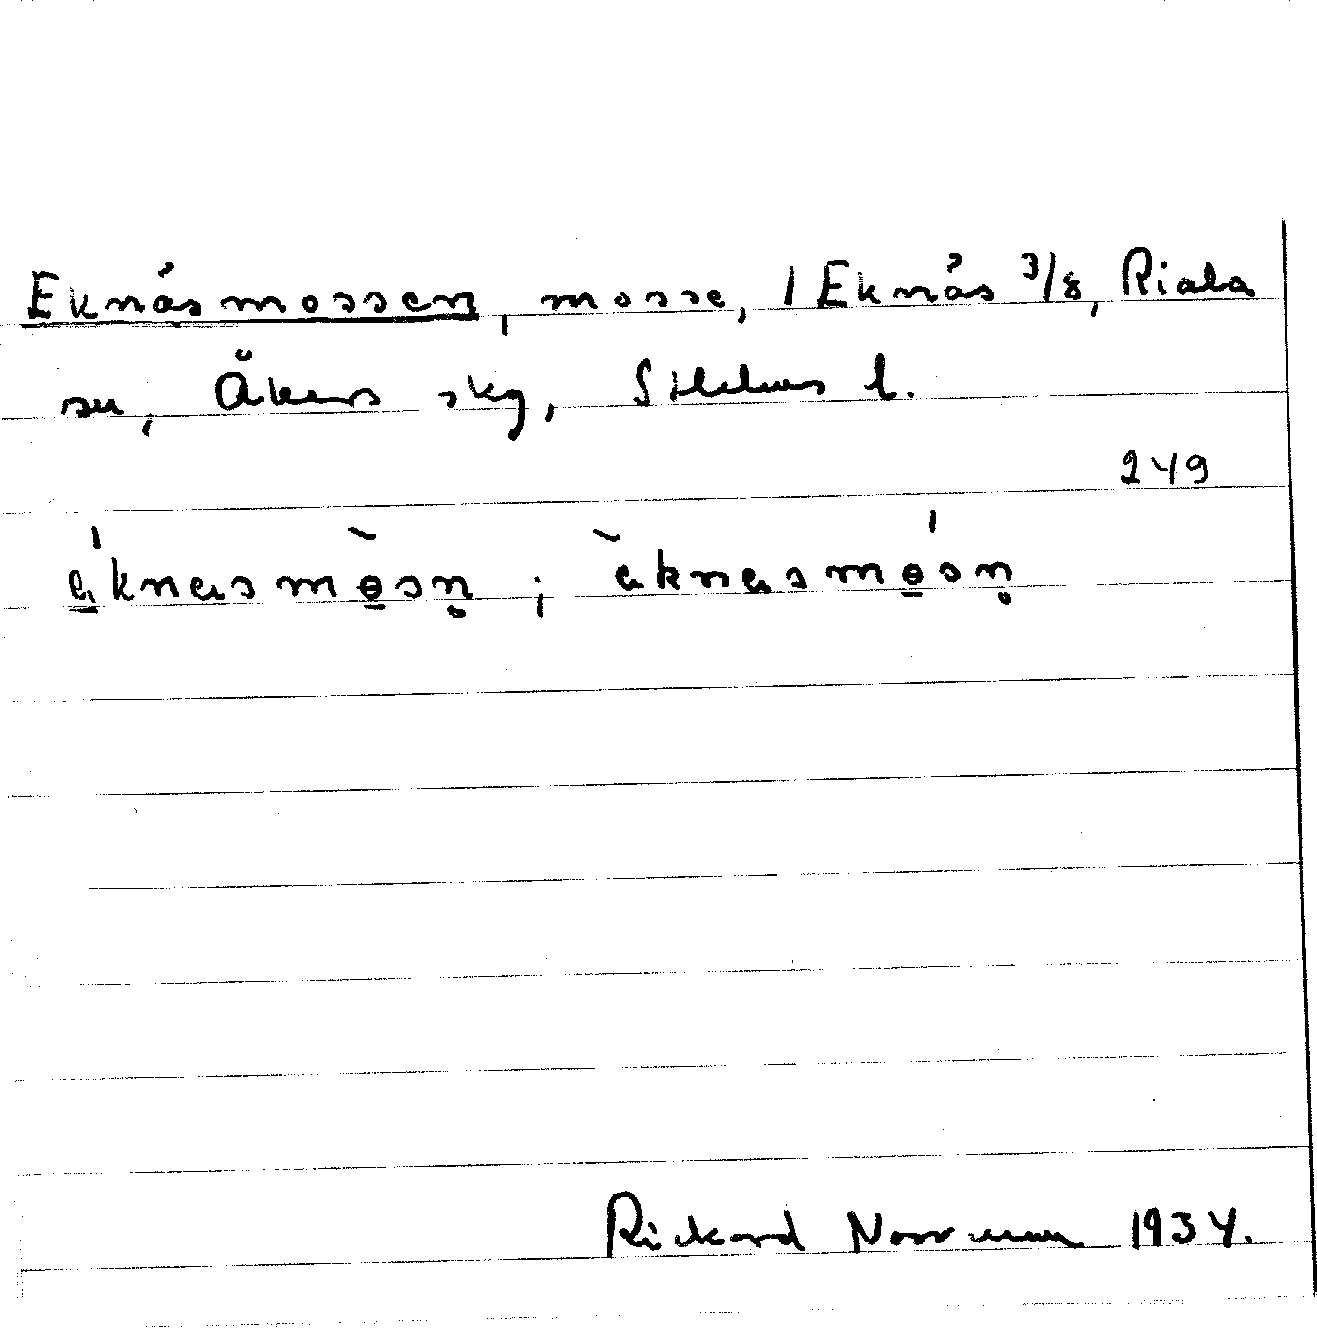 Eknäsmossen, mosse, 1 Eknäs 3/8, Riala
sn, Åkers skg, Sthlms l.
249
e̱knɑsmɵ̱sn̥ ; eknɑsmɵ̱sn̥
Rickard Norrman 1934.